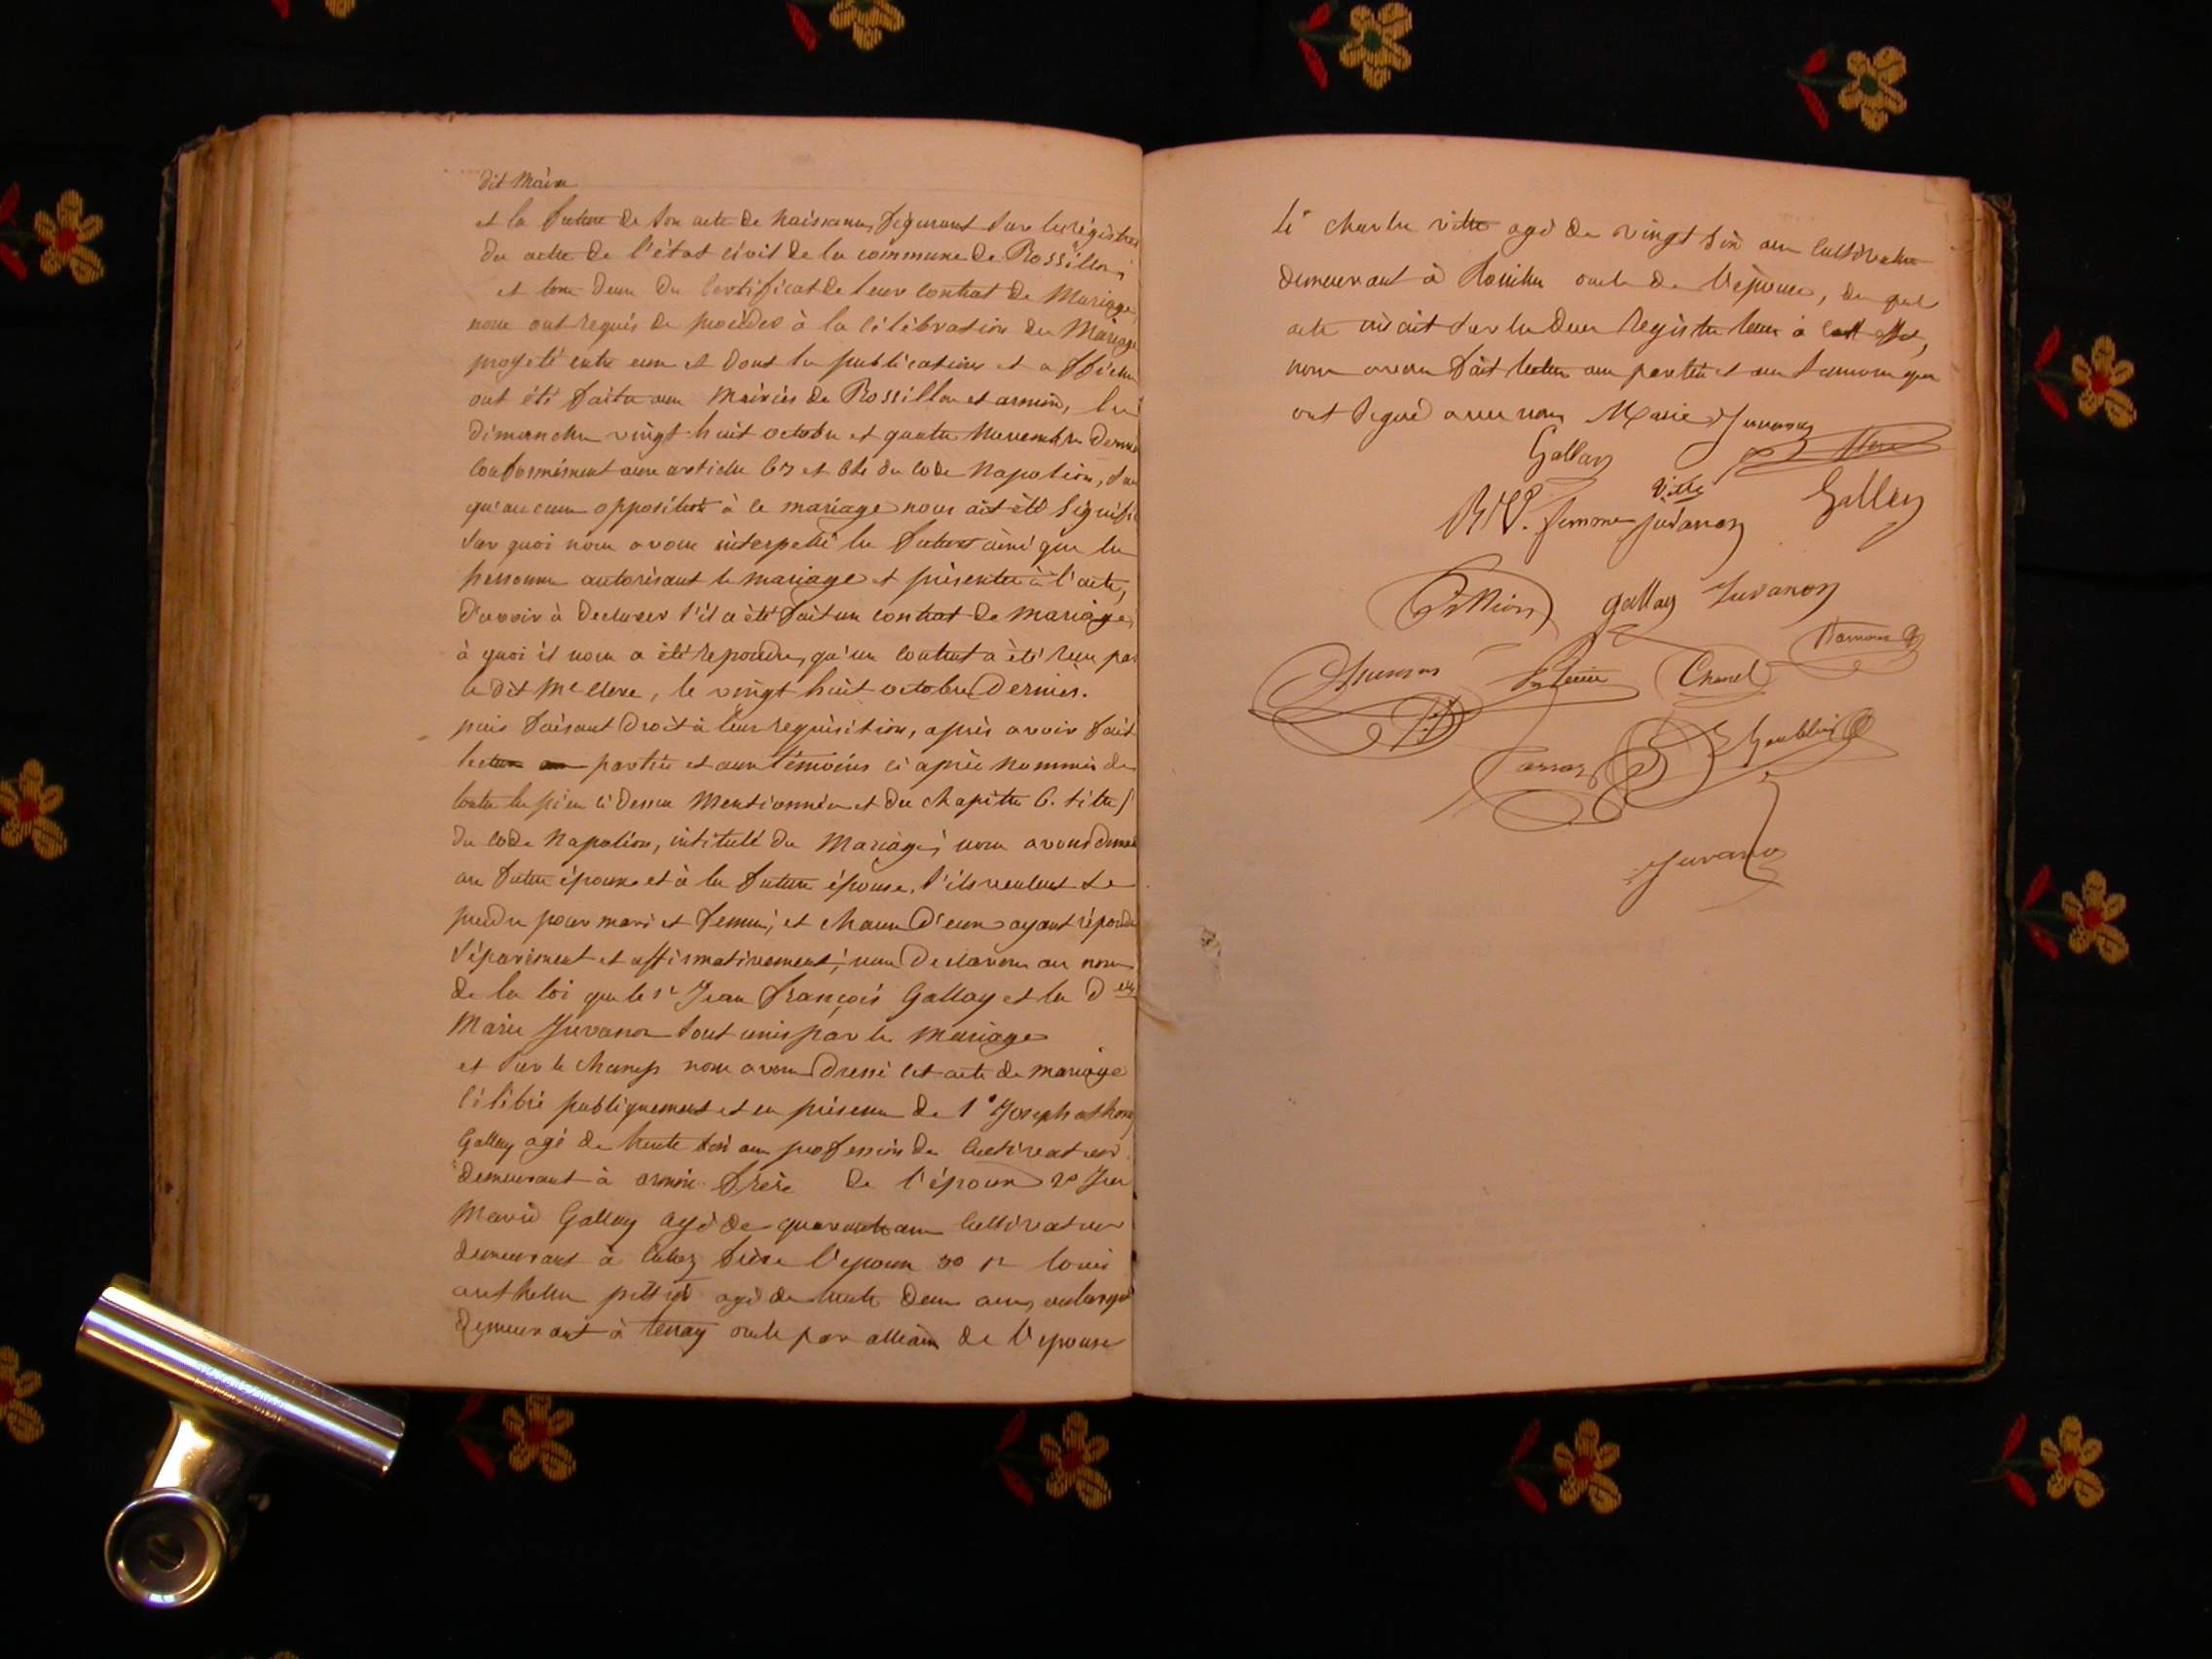 dit Maire
et la future de son acte de naissance figurant sur les régistres
des actes de l'état civil de la commune de Rossillon,
et tous deux du certificat de leur contrat de Mariage,
nous ont requis de procéder à la célébration du Mariage
projeté entre eux et dont les publications et affiches
ont été faites aux Mairies de Rossillon et armix, les
dimanches vingt-huit octobre et quatre Novembre dernier
conformément aux articles 63 et 64 du code Napoléon, sans
qu'aucune opposition à ce mariage nous ait été signifiée
sur quoi nous avons interpellé les futurs ainsi que les
personnes autorisant le mariage et présentes à l'acte,
d'avoir à declarer s'il a été fait un contrat de mariage,
à quoi il nous a été repondu, qu'un contrat a été reçu par
le dit Me Clerc, le vingt huit octobre Dernier.
puis faisant Droit à leur requisition, après avoir fait
lecture aux parties et aux témoins ci après nommés de
toutes les pièces ci dessus Mentionnées et du chapitre 6. titre 5
du code Napoléon, intitulé du Mariage; nous avons demandé
au futur époux et à la future épouse, s'ils veulent se
prendre pour mari et femme; et chacun d'eux ayant répondu
séparément et affirmativement; nous Declarons au nom
de la loi que le sr Jean François Gallay et la Delle
Marie Juvanon sont unis par le Mariage
et sur le champ nous avons Dressé cet acte de mariage
célébré publiquement et en présence de 1° Joseph
Gallay agé de trente six ans profession de Cultivateur
demeurant à armix frère de l'époux 2°
Marie Gallay agé de quarante ans Cultivateur
demeurant à frère l'epoux 3° sr Louis
anthelme agé de trente deux ans,
Demeurant à tenay oncle par alliance de l'epouse
4° charles vitte agé de vingt six ans Cultivateur
demeurant à oncle de l'épouse, du quel
acte inscrit sur les deux registres tenus à cet effet,
nous avons fait lecture aux parties et aux temoins qui
ont signé avec nous Marie Juvanon
Gallay
Vitte Gallay
femme Juvanon
gallay Juvanon
Chanel
Juvanon